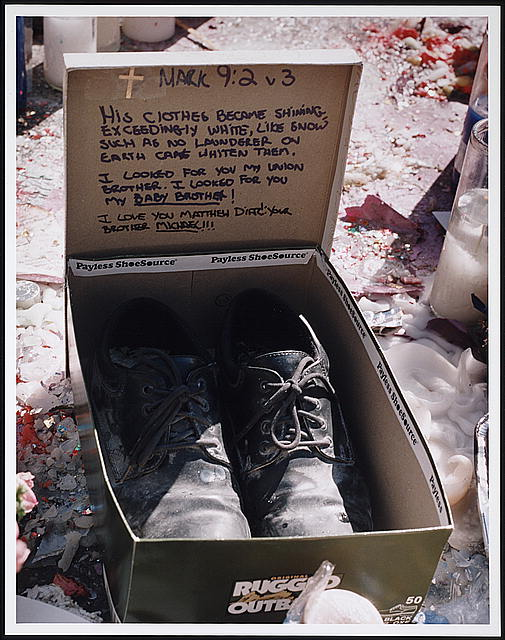 MARK 9:2 v 3
HIS CLOTHES BECAME SHINING,
EXCEEDINGLY WHITE, LIKE SNOW
SUCH AS NO LAUNDERER ON
EARTH CAN WHITEN THEM.
I LOOKED FOR YOU MY UNION
BROTHER. I LOOKED FOR YOU
MY BABY BROTHER!
I LOVE YOU MATTHEW YOUR
BROTHER MICHAEL!!!
Payless ShoeSource Payless ShoeSource
Payless ShoeSource
Payless ShoeSource
Payless
ORIGINAL
RUGGED
OUTBACK
50
BLACK